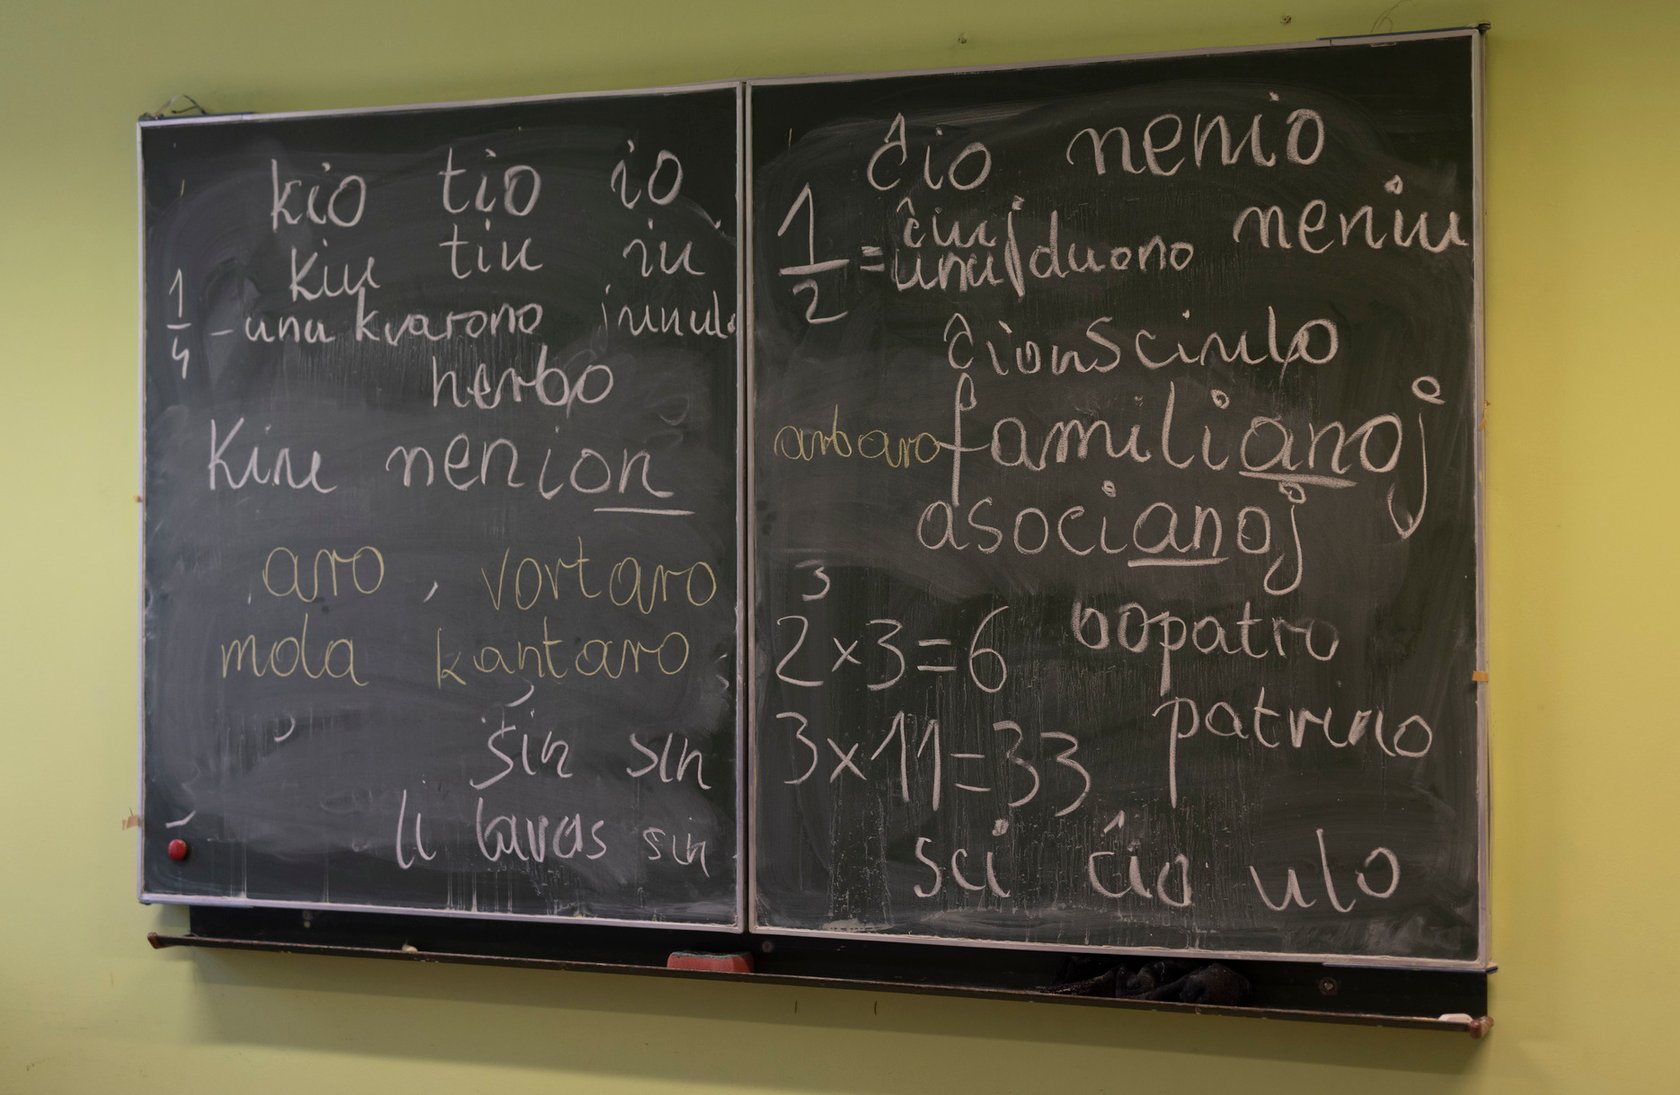 kio tio io
kiu tiu iu
1/4 - unu kvarono
herbo
Kiu nenion
aro, vortaro
mola kantaro
ŝin sin
li lavas sin
ĉio nenio
ĉiuj neniu
1/2 = unu duono
ĉionsciulo
arbaro familianoj
asocianoj
3
2 x 3 = 6 bopatro
3 x 11 = 33 patrino
sci ĉio ulo